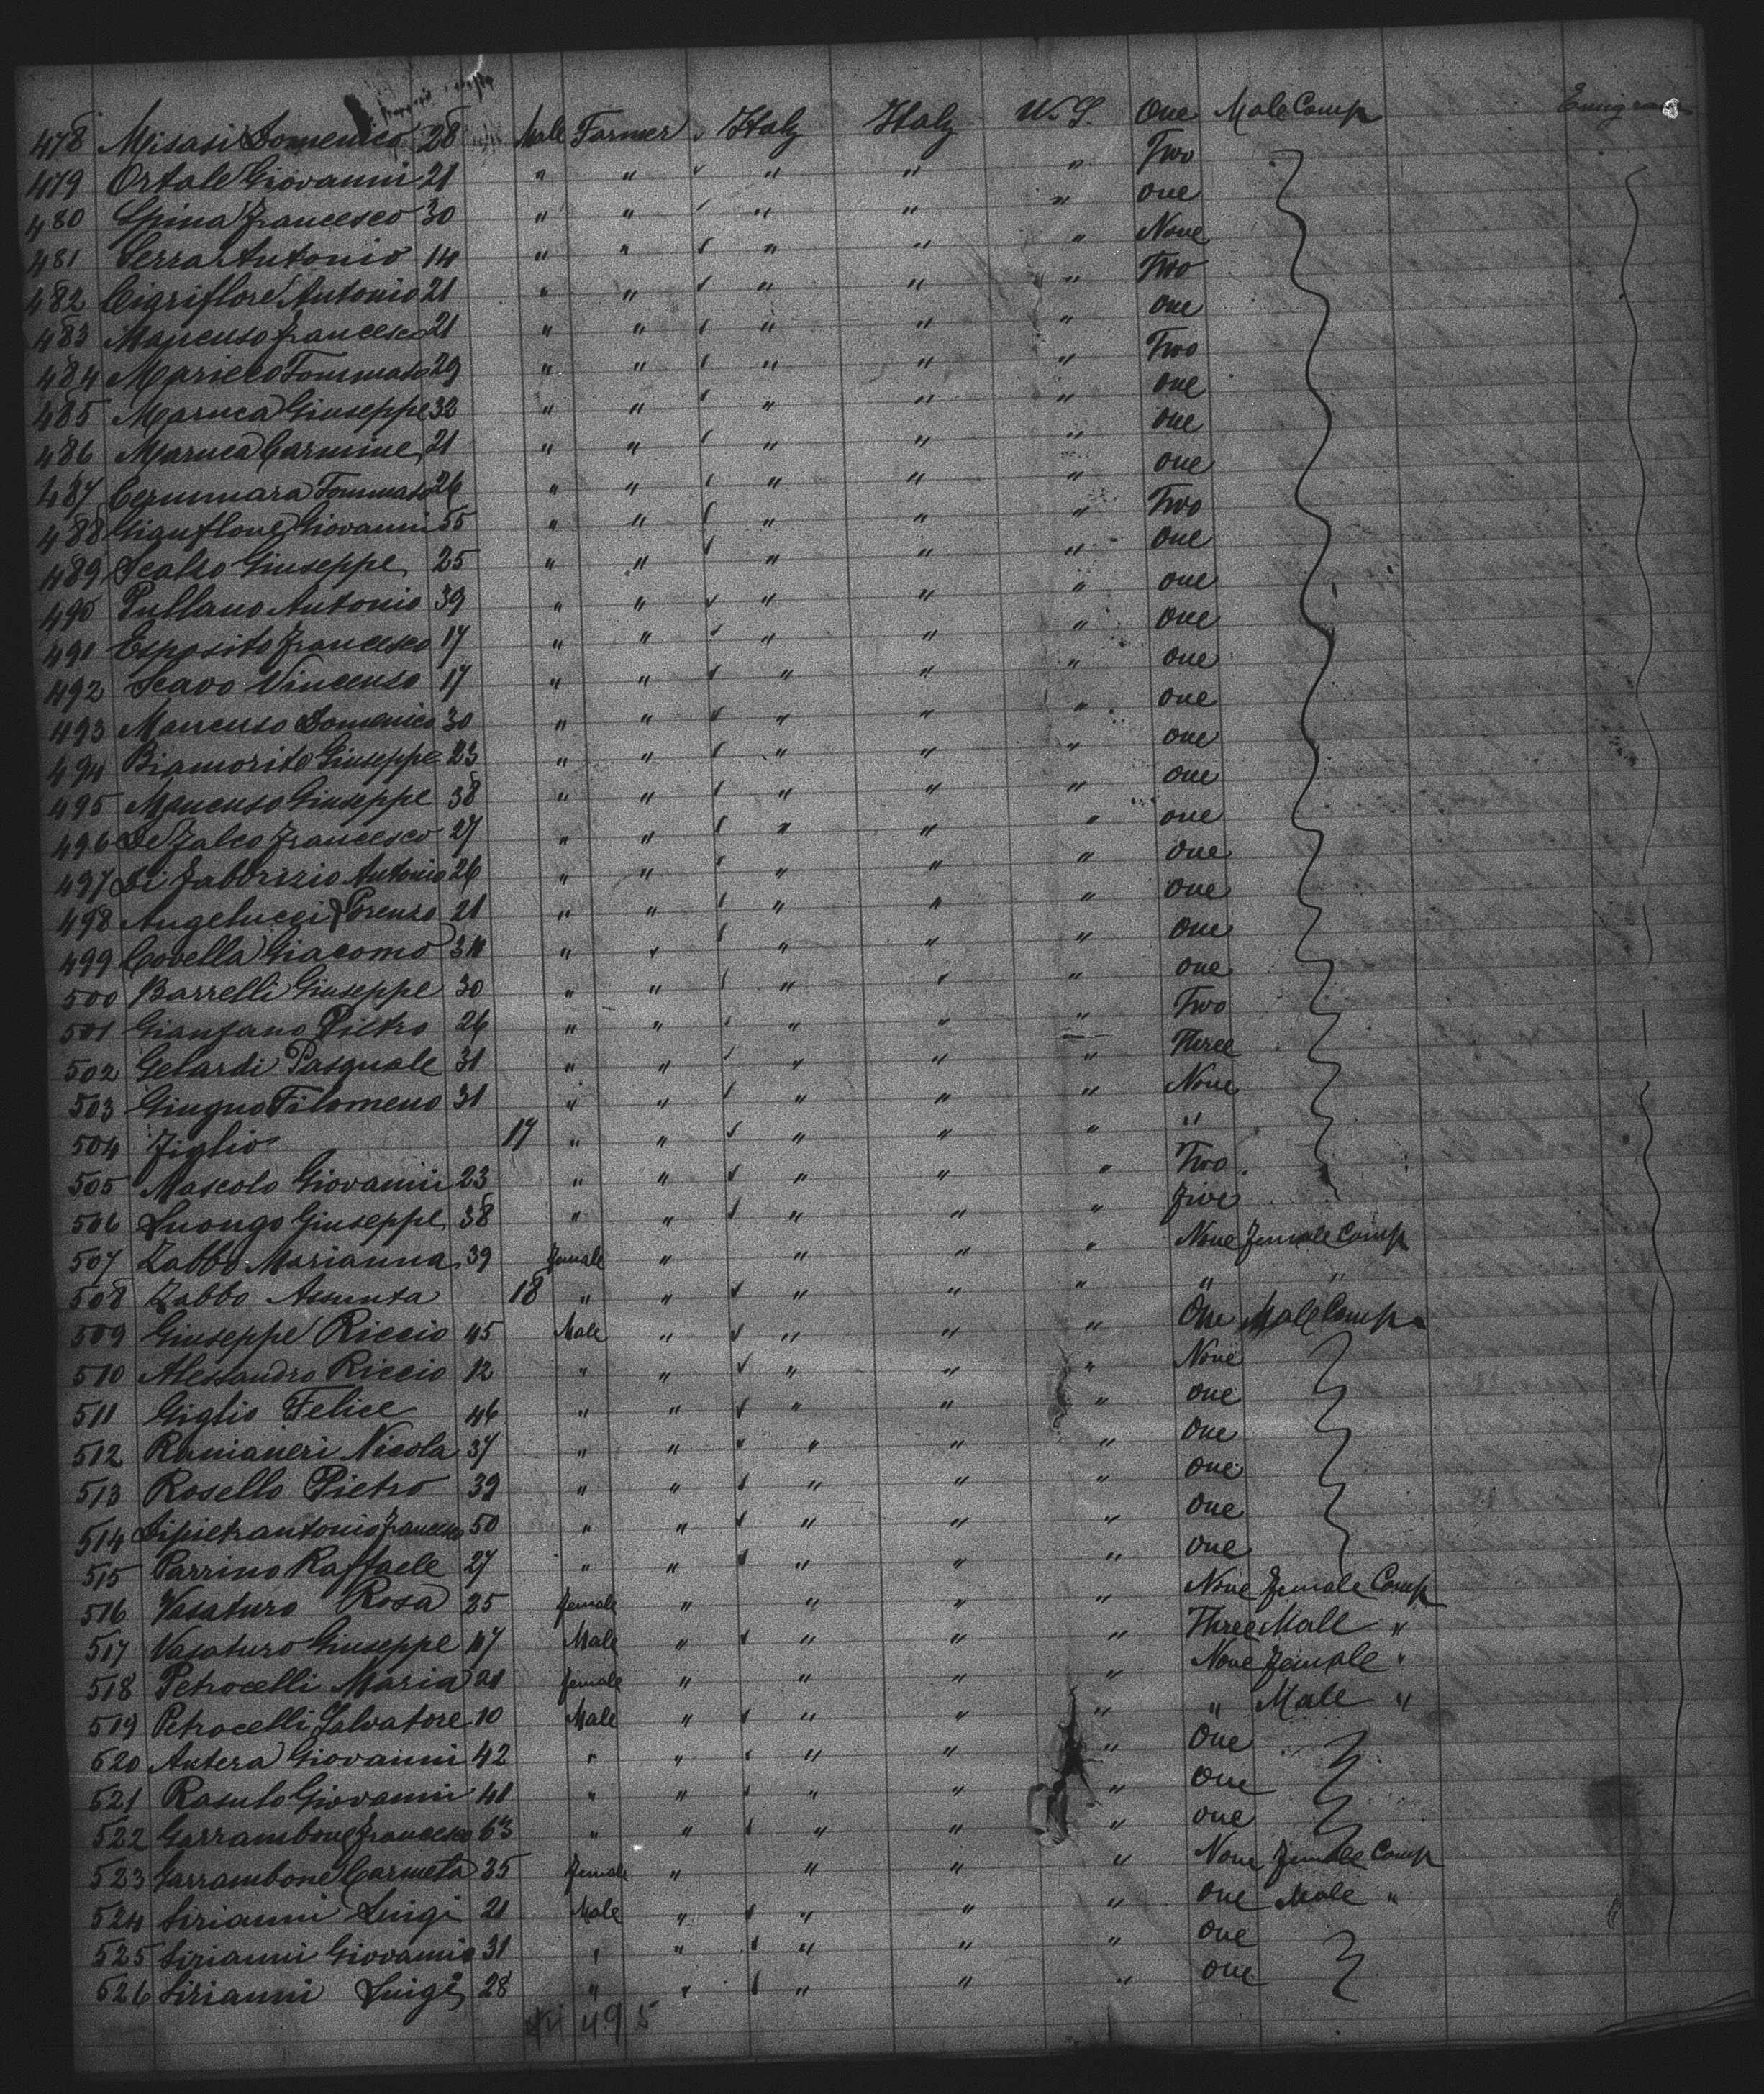 478 Misasi Domenico 28 Male Farmer ✓ Italy Italy U. S. One Male Comp Emigran
479 Ortale Giovanni 21 " " ✓ " " " Two
480 Spina Francesco 30 " " ✓ " " " one
481 Serra Antonio 14 " " ✓ " " " None
482 Cigriflore Antonio 21 " " ✓ " " " Two
483 Mancuso Francesco 21 " " ✓ " " " one
484 Marieco Tommaso 29 " " ✓ " " " Two
485 Maruca Giuseppe 32 " " ✓ " " " one
486 Maruca Carmine 21 " " ✓ " " " one
487 Cerummara Tommaso 26 " " ✓ " " " one
488 Gianflone Giovanni 55 " " ✓ " " " Two
489 Scalzo Giuseppe 25 " " ✓ " " " one
490 Pullano Antonio 39 " " ✓ " " " one
491 Esposito Francesco 17 " " ✓ " " " one
492 Scavo Vincenso 17 " " ✓ " " " one
493 Mancuso Domenico 30 " " ✓ " " " one
494 Biamorite Giuseppe 23 " " ✓ " " " one
495 Mancuso Giuseppe 38 " " ✓ " " " one
496 De Falco Francesco 27 " " ✓ " " " one
497 Di Fabbrizio Antonio 26 " " ✓ " " " one
498 Angelucci Lorenzo 21 " " ✓ " " " one
499 Covella Giacomo " " ✓ " " " one
500 Barrelli Giuseppe 30 " " ✓ " " " one
501 Gianfano Pietro 26 " " ✓ " " " Two
502 Gelardi Pasquale 31 " " ✓ " " " Three
503 Giugno Filomeno 31 " " ✓ " " " None
504 Figlio 17 " " ✓ " " " "
505 Mascolo Giovanni 23 " " ✓ " " " Two
506 Luongo Giuseppe 38 " " ✓ " " " Five
507 Zabbo Marianna 39 Female " " " " None Female Comp
508 Zabbo Assunta 18 " " ✓ " " " " "
509 Giuseppe Riccio 45 Male " ✓ " " " One Male Comp
510 Alessandro Riccio 12 " " ✓ " " " None
511 Giglio Felice 46 " " ✓ " " " one
512 Ranianeri Nicola 37 " " ✓ " " " one
513 Rosello Pietro 39 " " ✓ " " " one
514 Dipietrantonio Francesco 50 " " ✓ " " " one
515 Parrino Raffaele 27 " " ✓ " " " one
516 Vasaturo Rosa 25 Female " " " " None Female Comp
517 Vasaturo Giuseppe 17 Male " ✓ " " " Three Male "
518 Petrocelli Maria 21 Female " " " " None Female "
519 Petrocelli Salvatore 10 Male " ✓ " " " " Male "
520 Antera Giovanni 42 " " ✓ " " " One
521 Rasulo Giovanni 41 " " ✓ " " " one
522 Garrambone Francesco 63 " " ✓ " " " one
523 Garrambone Carmela 35 Female " " " " None Female Comp
524 Sirianni Luigi 21 Male " ✓ " " " one Male " "
525 Sirianni Giovanni 31 " " ✓ " " " one
526 Sirianni Luigi 28 " " ✓ " " " one
495